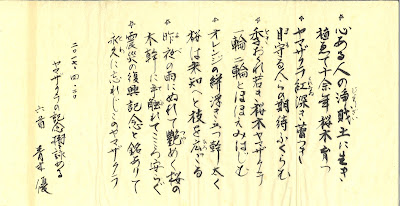 心ある人の浄財土に生き
植ゑて十余年桜木育つ
ヤマザクラ紅深き蕾つき
見守る人らの期待ふくらむ
香おれ若き桜木ヤマザクラ
一輪二輪とほほえみはじむ
オレンジの絣浮き立つ幹太く
桜は未知へと枝を広ぐる
昨夜の雨にぬれて艶めく桜の
木幹に手触れてこころ安らぐ
震災の復興記念と銘ありて
永久に忘れじこのヤマザクラ
二〇一七・四・二〇
ヤマザクラの記念樹詠める
六首 青木 優